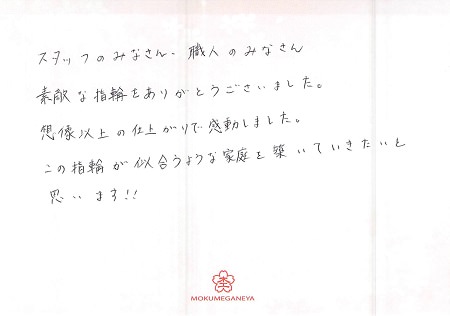 スタッフのみなさん、職人のみなさん
素敵な指輪をありがとうございました。
想像以上の仕上がりで感動しました。
この指輪が似合うような家庭を築いていきたいと
思います!!
杢
MOKUMEGANEYA